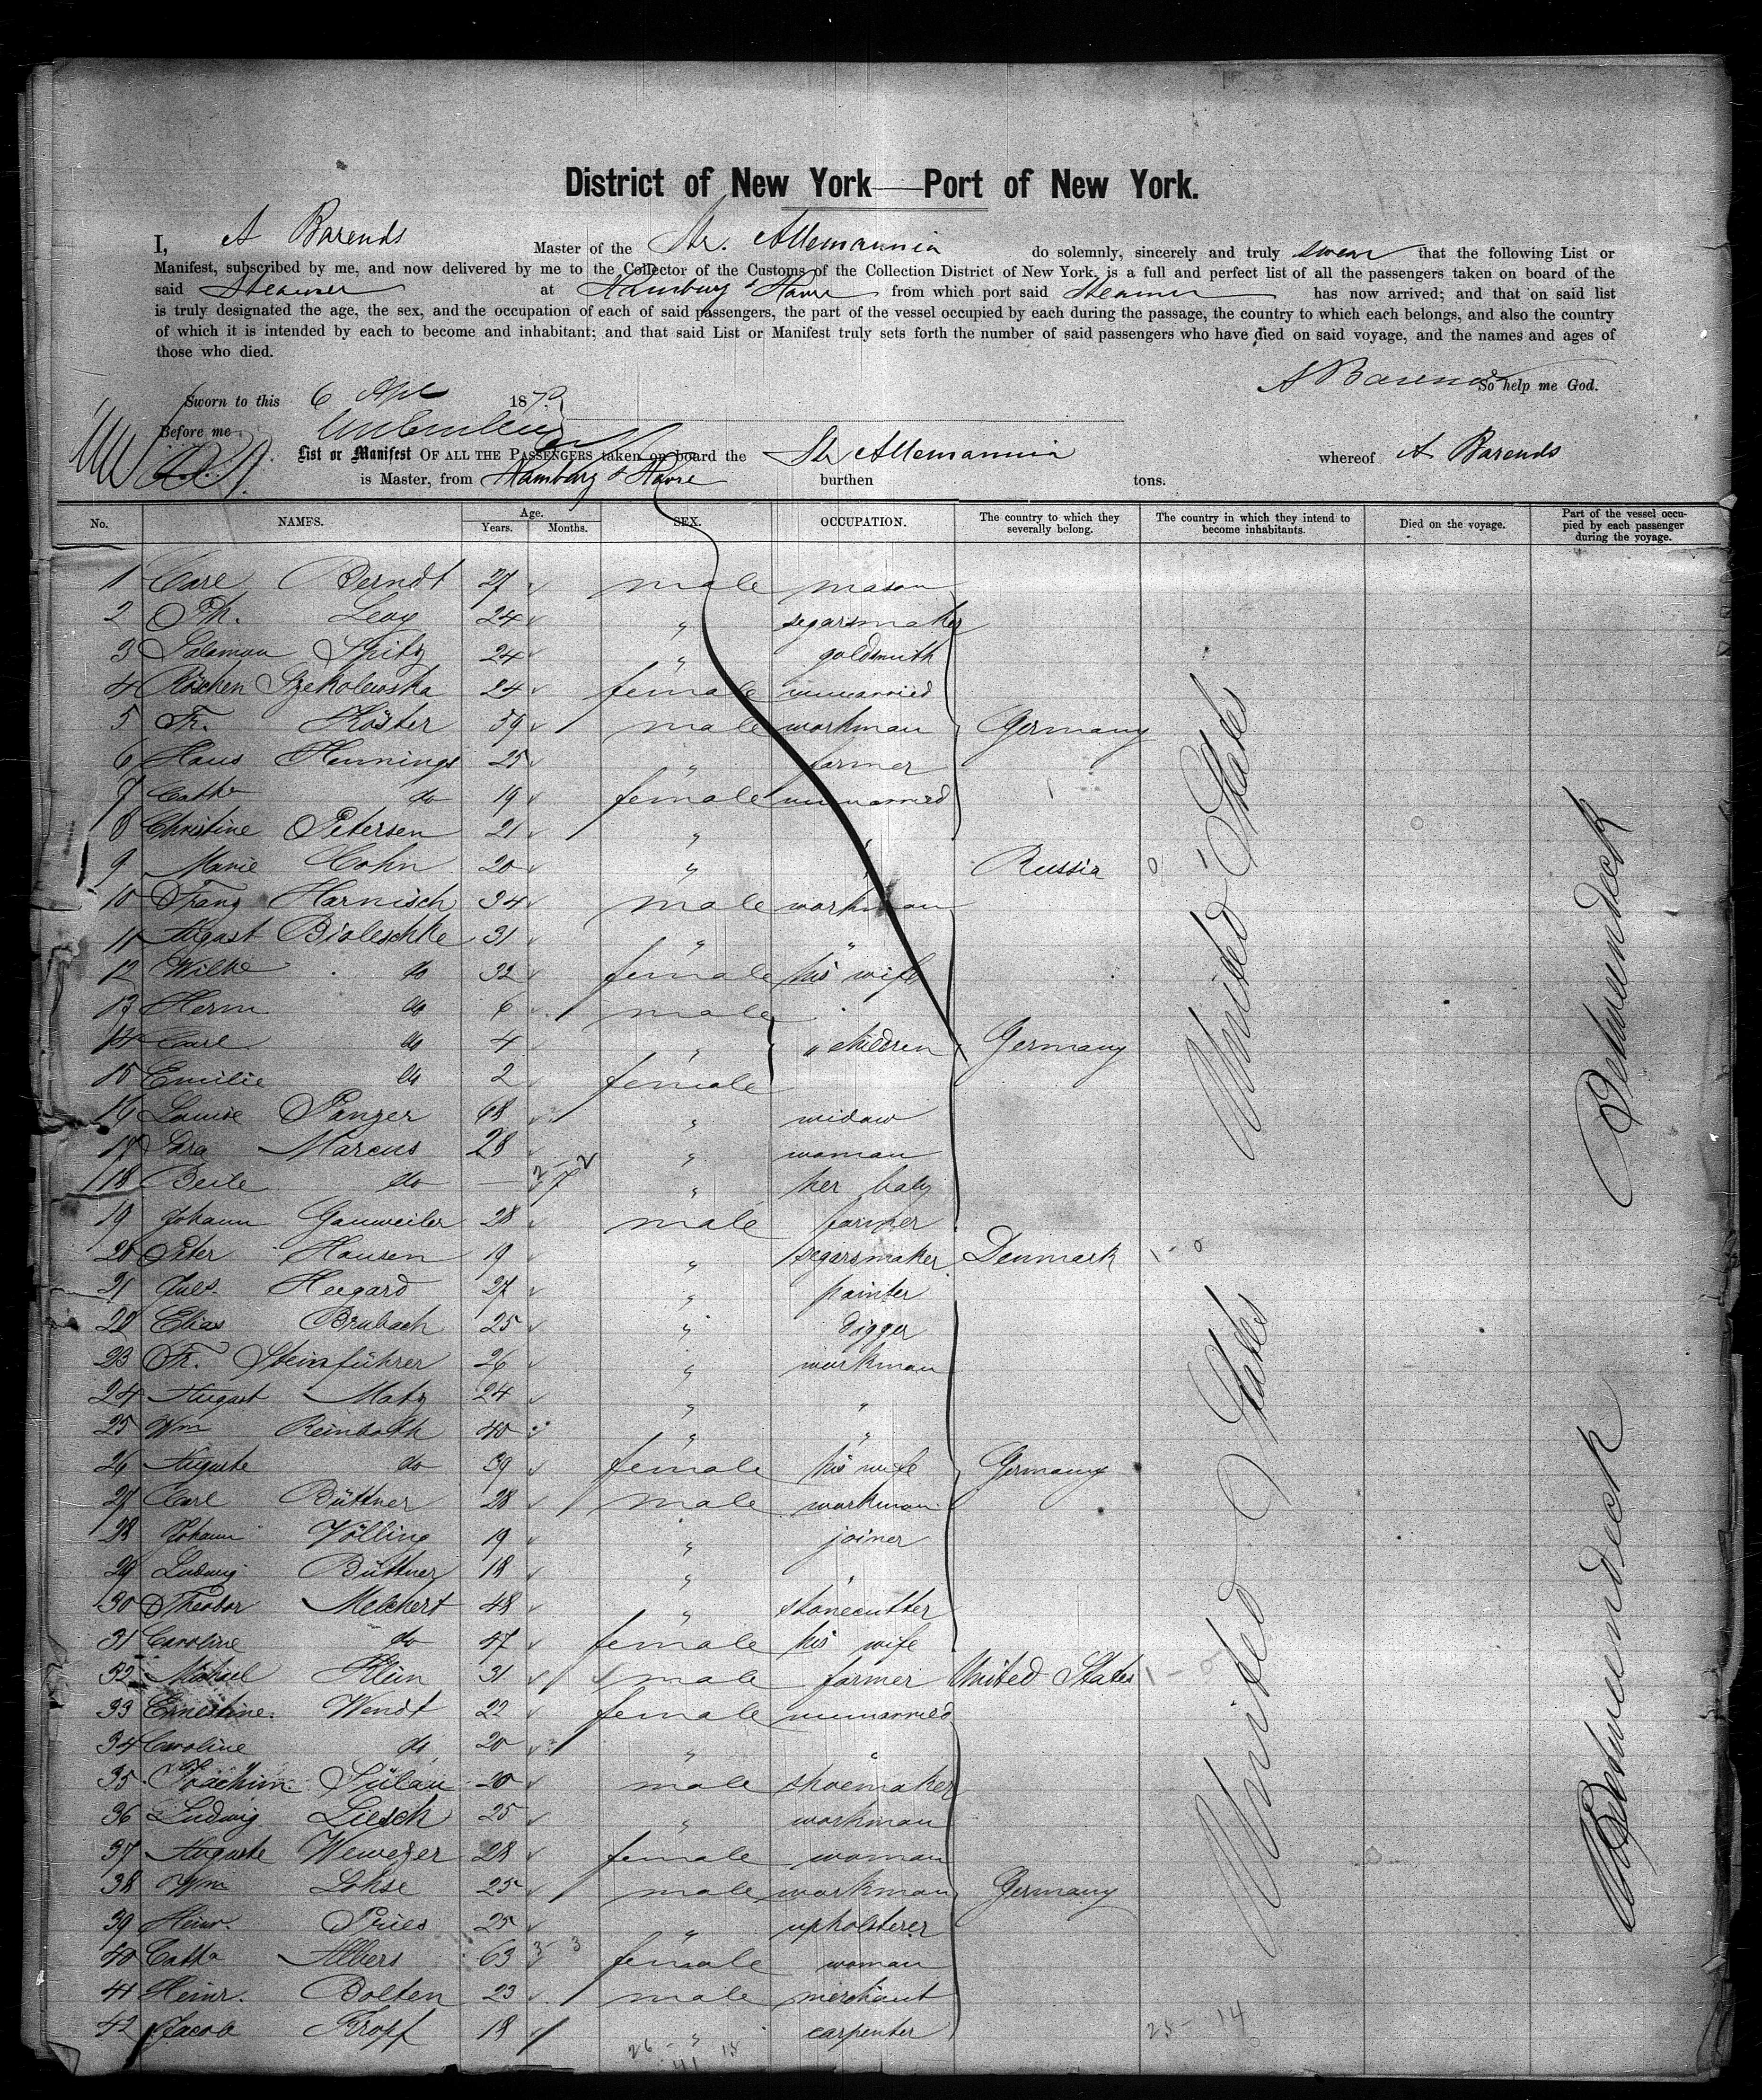 District of New York—Port of New York.
I, A Barends Master of the Str. Allemannia do solemnly, sincerely and truly swear that the following List or
Manifest, subscribed by me, and now delivered by me to the Collector of the Customs of the Collection District of New York, is a full and perfect list of all the passengers taken on board of the
said Steamer at Hamburg & Havre from which port said Steamer has now arrived; and that on said list
is truly designated the age, the sex, and the occupation of each of said passengers, the part of the vessel occupied by each during the passage, the country to which each belongs, and also the country
of which it is intended by each to become and inhabitant; and that said List or Manifest truly sets forth the number of said passengers who have died on said voyage, and the names and ages of
those who died.
A Barends So help me God.
Sworn to this 6 Apl 187
Before me
List or Manifest OF ALL THE PASSENGERS taken on board the Str Allemannia whereof A Barends
is Master, from Hamburg & Havre burthen tons.
No. NAMES. Age. Years. Months. SEX. OCCUPATION. The country to which they severally belong. The country in which they intend to become inhabitants. Died on the voyage. Part of the vessel occupied by each passenger during the voyage.
1 Carl Berndt 27 male mason
2 Ph. Levy 24 " segarsmaker
3 Salomon Spitz 24 " goldsmith
4 Röschen Szekolewska 24 female unmarried
5 Fr. Köster 59 male workman Germany
6 Hans Hennings 25 " farmer
7 Cathe do 19 female unmarried
8 Christine Petersen 21 " "
9 Marie Cohn 20 " " Russia 0
10 Franz Harnisch 34 male workman
11 August Bialeschke 31 " "
12 Wilhe do 32 female his wife
13 Herm do 6 male
14 Carl do 4 " " children Germany
15 Emilie do 2 female
16 Louise Panzer 68 " widow
17 Sara Marcus 28 " woman
18 Beile do — " her baby
19 Johann Gauweiler 28 male farmer
20 Peter Hansen 19 " segarsmaker Denmark 1 - 0
21 Juls. Heegard 27 " painter
22 Elias Brubach 25 " digger
23 Fr. Steinführer 26 " workman
24 August Matz 24 " "
25 Wm Reinboth 40 " "
26 Auguste do 39 female his wife Germany
27 Carl Büttner 28 male workman
28 Johann Völling 19 " joiner
29 Ludwig Büttner 18 " "
30 Theodor Melchert 48 " stonecutter
31 Caroline do 47 female his wife
32 Michael Klein 31 male farmer United States 1 - 0
33 Ernestine Wendt 22 female unmarried
34 Caroline do 20 " "
35 Joachim Sülau 20 male shoemaker
36 Ludwig Liesch 25 " workman
37 Auguste Wewezer 28 female woman
38 Wm Lohse 25 male workman Germany
39 Heinr. Pries 25 " upholsterer
40 Catha Albers 63 female woman
41 Heinr. Bolten 23 male merchant
42 Jacob Kropf 18 " carpenter
United States
United States
Betweendeck
Betweendeck